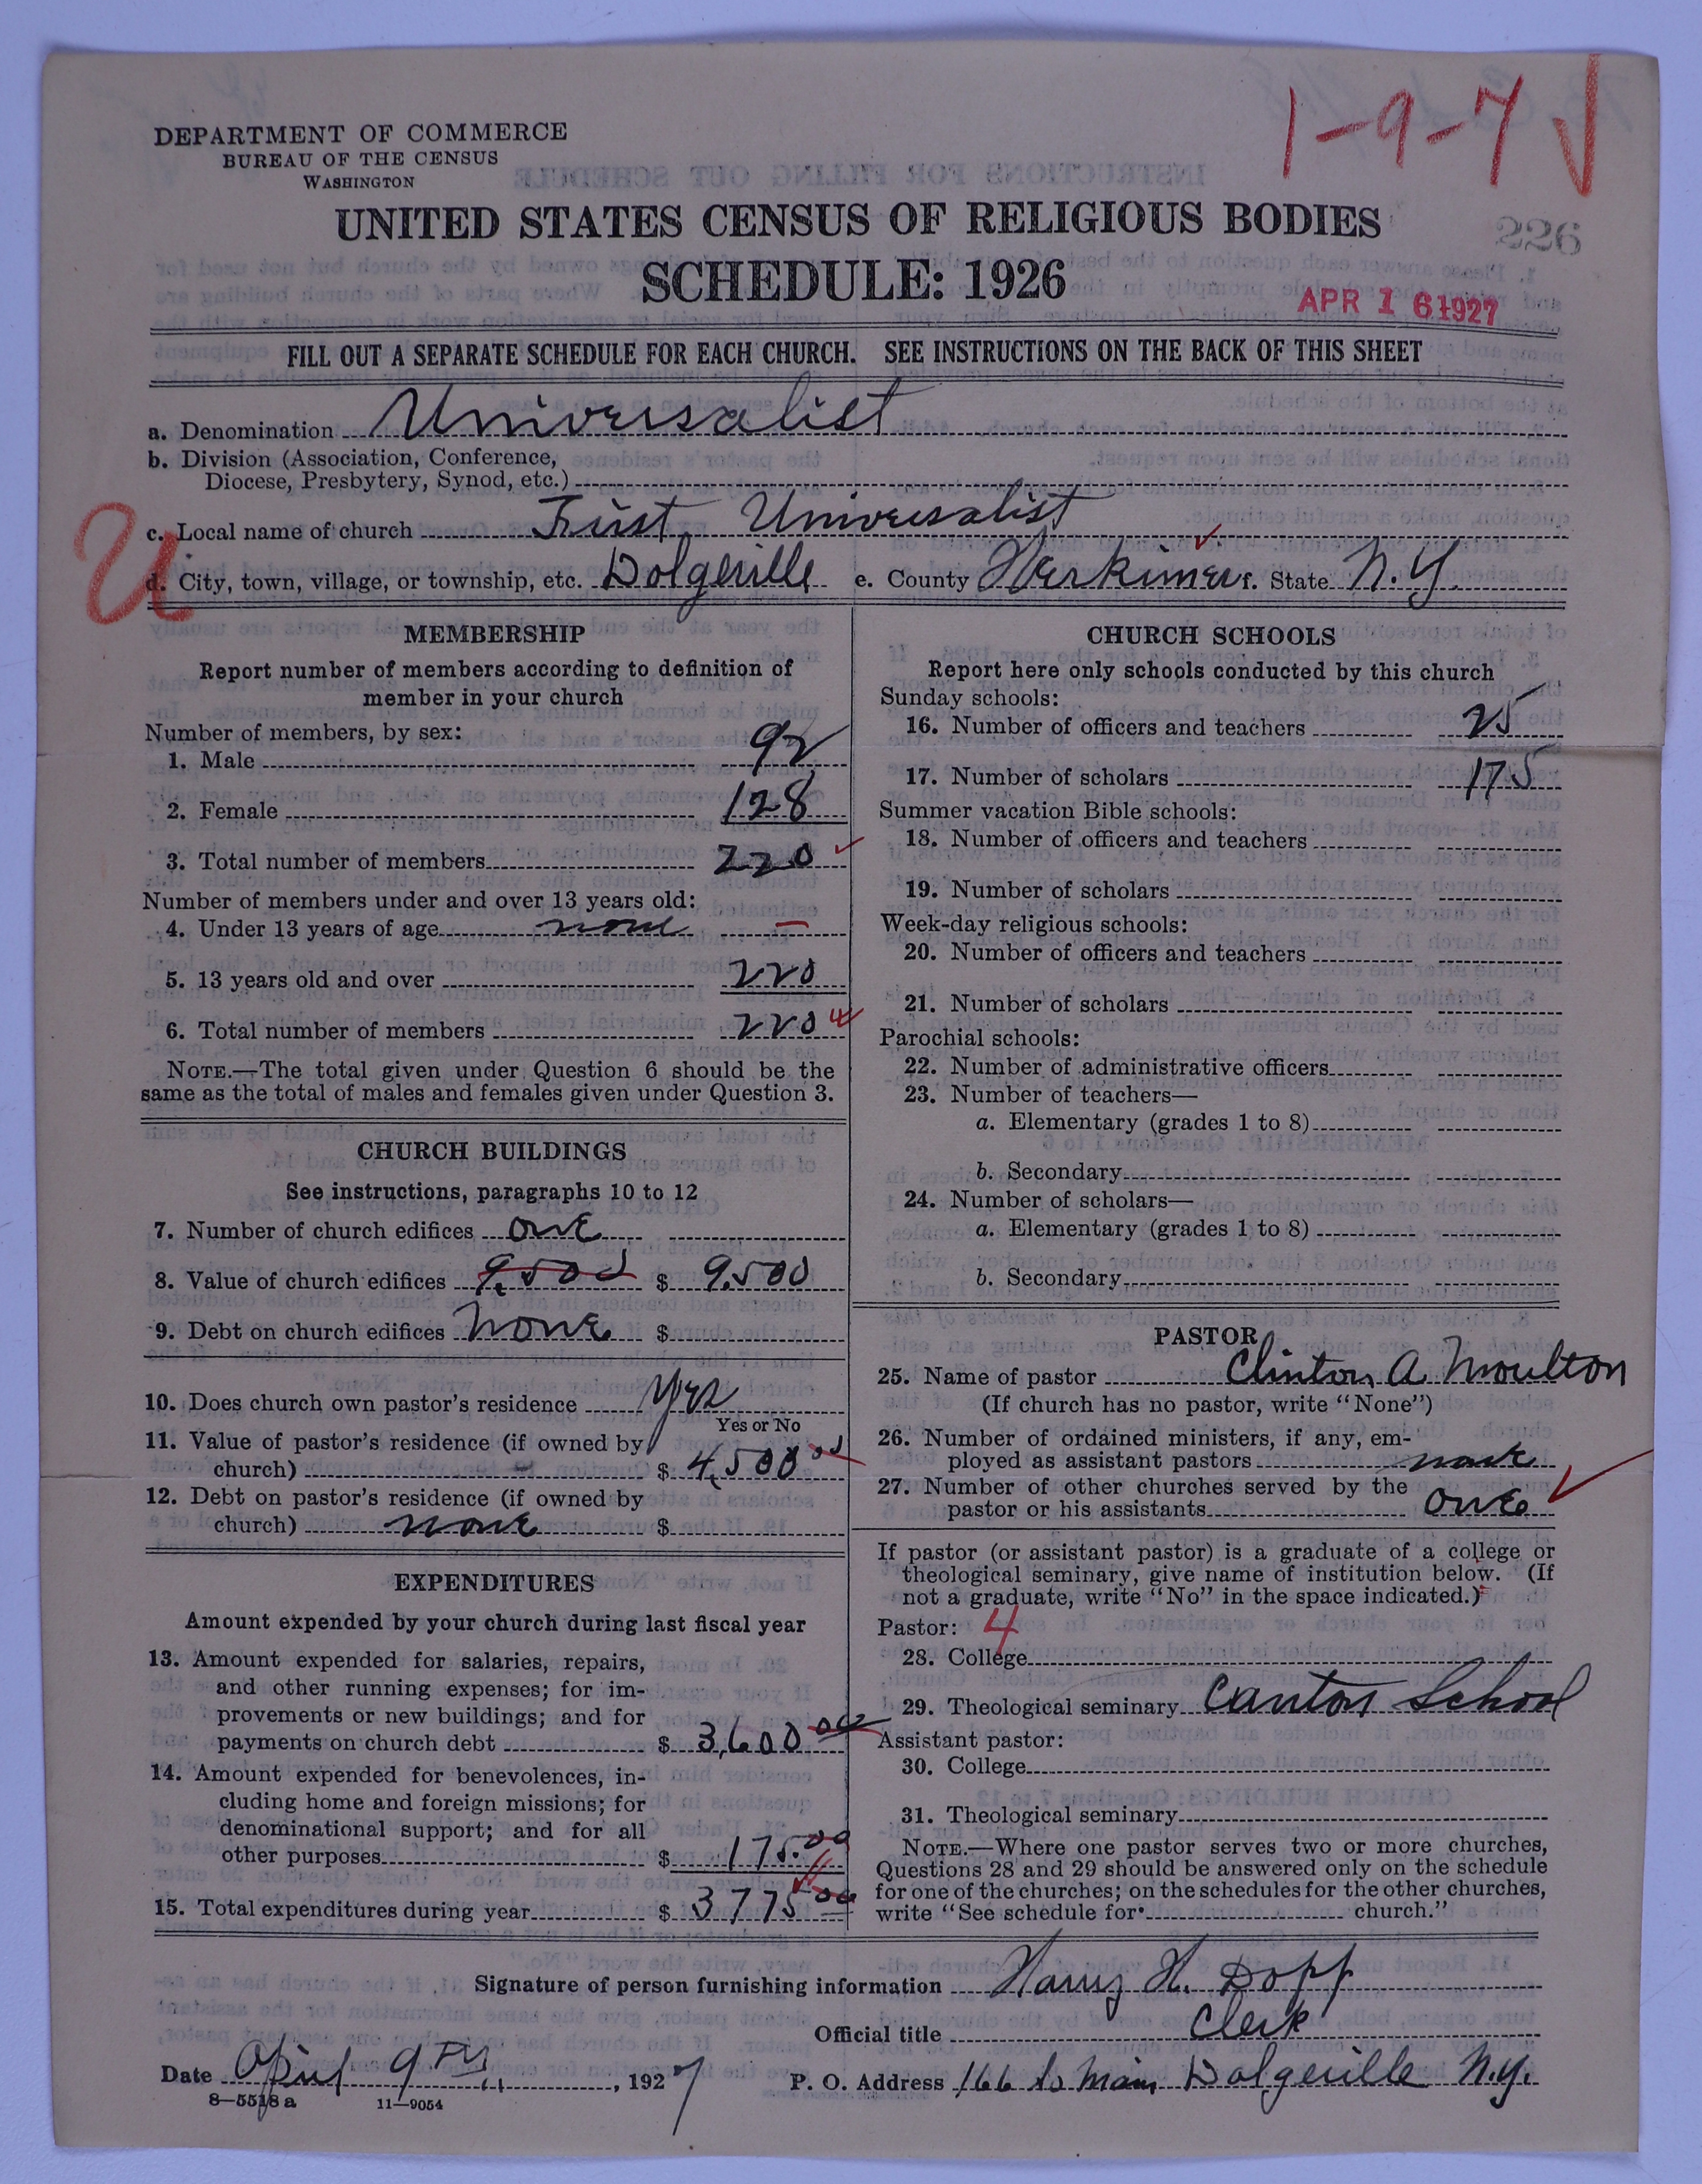 1-9-7
DEPARTMENT OF COMMERCE
BUREAU OF THE CENSUS
WASHINGTON
UNITED STATES CENSUS OF RELIGIOUS BODIES
226
SCHEDULE: 1926
APR 16 1927
FILL OUT A SEPARATE SCHEDULE FOR EACH CHURCH. SEE INSTRUCTIONS ON THE BACK OF THIS SHEET
a. Denomination Universalist
b. Division (Association, Conference,
Diocese, Presbytery, Synod, etc.)
U
c. Local name of church First Universalist
d. City, town, village, or township, etc. Dolgeville e. County Herkimer f. State N.Y.
MEMBERSHIP
Report number of members according to definition of
member in your church
Number of members, by sex:
1. Male 92
2. Female 128
3. Total number of members 220
Number of members under and over 13 years old:
4. Under 13 years of age none —
5. 13 years old and over 220
6. Total number of members 220
NOTE.—The total given under Question 6 should be the
same as the total of males and females given under Question 3.
CHURCH BUILDINGS
See instructions, paragraphs 10 to 12
7. Number of church edifices one
8. Value of church edifices 9,500 $ 9,500
9. Debt on church edifices none $
10. Does church own pastor's residence Yes
Yes or No
11. Value of pastor's residence (if owned by
church) $ 4,500 00
12. Debt on pastor's residence (if owned by
church) none $
EXPENDITURES
Amount expended by your church during last fiscal year
13. Amount expended for salaries, repairs,
and other running expenses; for im-
provements or new buildings; and for
payments on church debt $ 3,600 00
14. Amount expended for benevolences, in-
cluding home and foreign missions; for
denominational support; and for all
other purposes $ 175.00
15. Total expenditures during year $ 3775 00
CHURCH SCHOOLS
Report here only schools conducted by this church
Sunday schools:
16. Number of officers and teachers 25
17. Number of scholars 175
Summer vacation Bible schools:
18. Number of officers and teachers
19. Number of scholars
Week-day religious schools:
20. Number of officers and teachers
21. Number of scholars
Parochial schools:
22. Number of administrative officers
23. Number of teachers—
a. Elementary (grades 1 to 8)
b. Secondary
24. Number of scholars—
a. Elementary (grades 1 to 8)
b. Secondary
PASTOR
25. Name of pastor Clinton A Moulton
(If church has no pastor, write "None")
26. Number of ordained ministers, if any, em-
ployed as assistant pastors none
27. Number of other churches served by the
pastor or his assistants one
If pastor (or assistant pastor) is a graduate of a college or
theological seminary, give name of institution below. (If
not a graduate, write "No" in the space indicated.)
Pastor: 4
28. College
29. Theological seminary Canton School
Assistant pastor:
30. College
31. Theological seminary
NOTE.—Where one pastor serves two or more churches,
Questions 28 and 29 should be answered only on the schedule
for one of the churches; on the schedules for the other churches,
write "See schedule for church."
Signature of person furnishing information Harry H. Dopp
Official title Clerk
Date April 9th, 1927 P. O. Address 166 So Main Dolgeville N.Y.
8-5518 a 11-9054